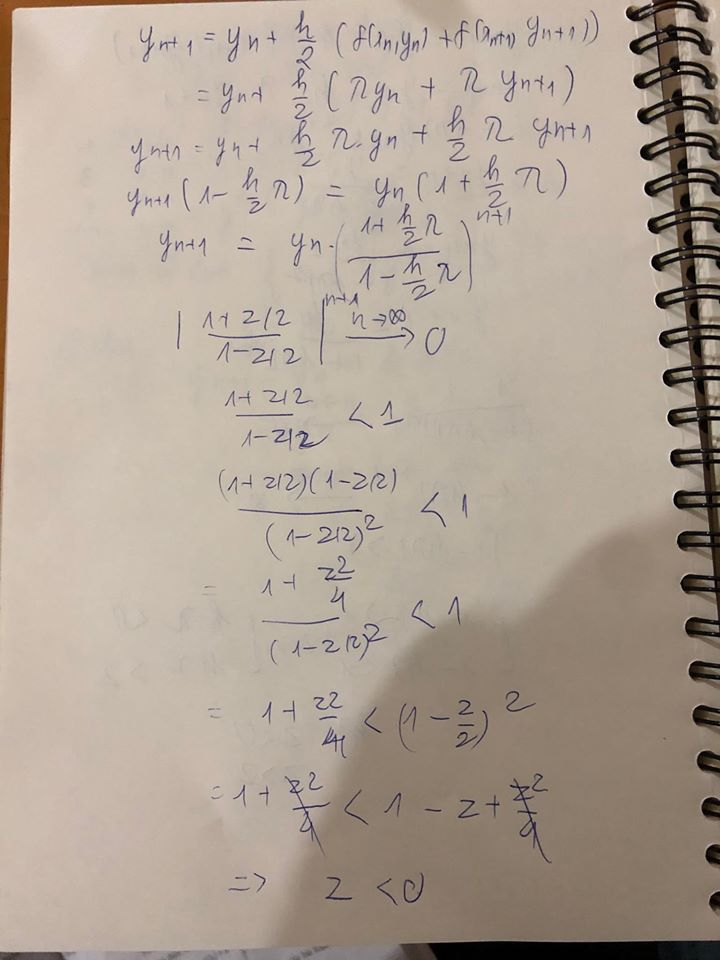 yn+1 = yn + h/2 (f(xn, yn) + f(xn+1, yn+1))
= yn + h/2 (λyn + λ yn+1)
yn+1 = yn + h/2 λ · yn + h/2 λ yn+1
yn+1 (1 - h/2 λ) = yn (1 + h/2 λ)
yn+1 = yn · ((1 + h/2 λ) / (1 - h/2 λ))^n+1
| (1 + z/2) / (1 - z/2) |^n+1 n→∞ → 0
(1 + z/2) / (1 - z/2) < 1
(1 + z/2)(1 - z/2) / (1 - z/2)^2 < 1
= (1 + z^2/4) / (1 - z/2)^2 < 1
= 1 + z^2/4 < (1 - z/2)^2
= 1 + z^2/4 < 1 - z + z^2/4
=> z < 0